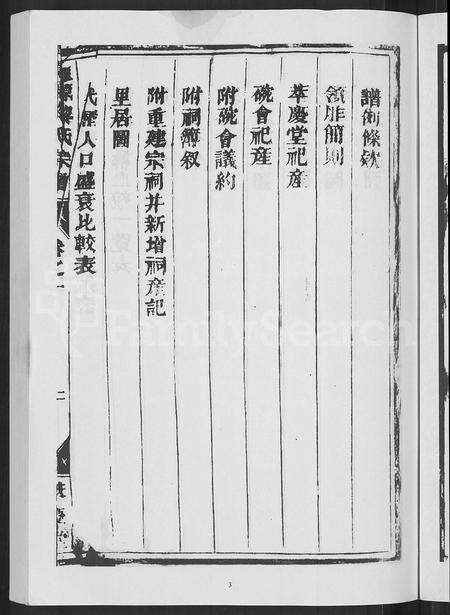 譜術條欵
領胙簡則
萃慶堂祀產
硫會祀產
附硫會議約
附祠簿叙
附重建宗祠并新增祠產記
里居圖
代歷人口盛衰比較表
氏宗譜
卷之一
二
3
FamilySearch